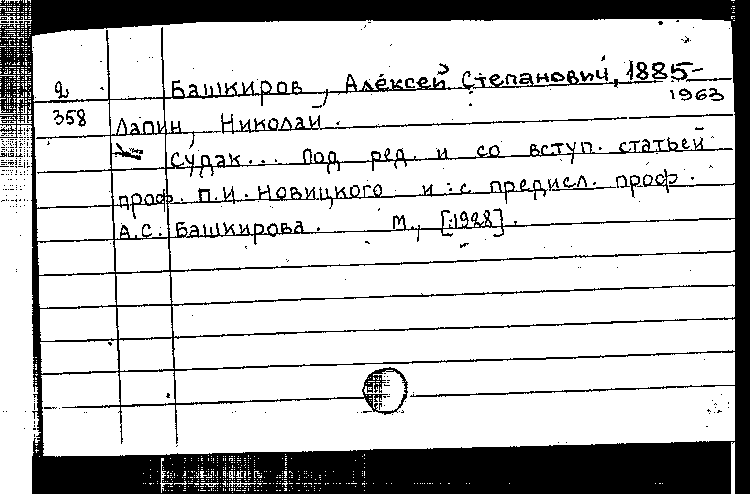 Башкиров, Алексей Степанович, 1885-
1963
2
358
Лапин, Николай.
Судак... Под ред. и со вступ. статьей
проф. П.И. Новицкого и с предисл. проф.
А.С. Башкирова. М., [1928].